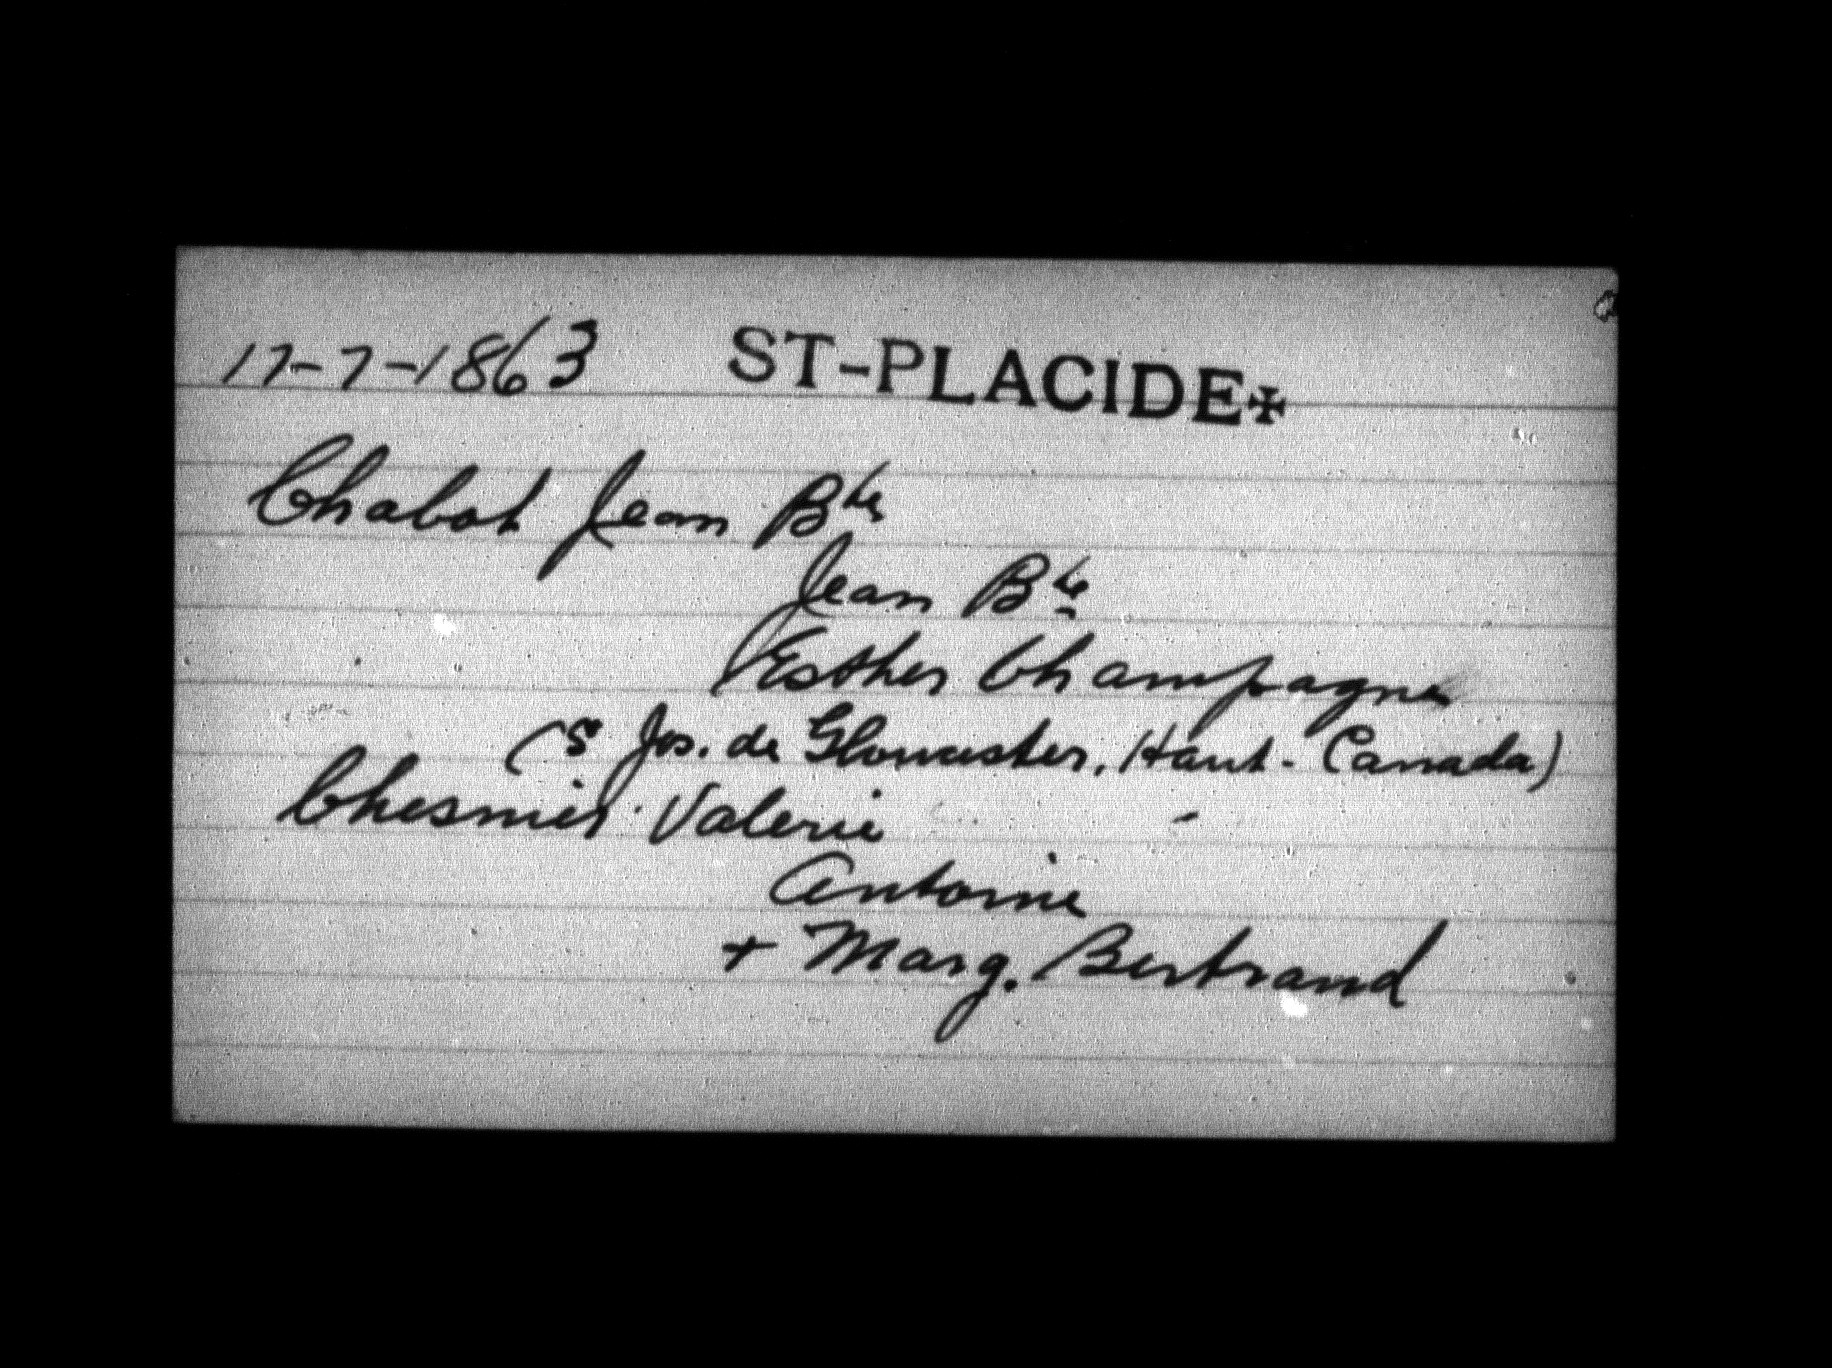 17-7-1863 ST-PLACIDE✠
Chabot Jean Bte
Jean Bte
Esther Champagne
(S Jos. de Gloucester, Haut-Canada)
Chesnier Valerie
Antoine
+ Marg. Bertrand